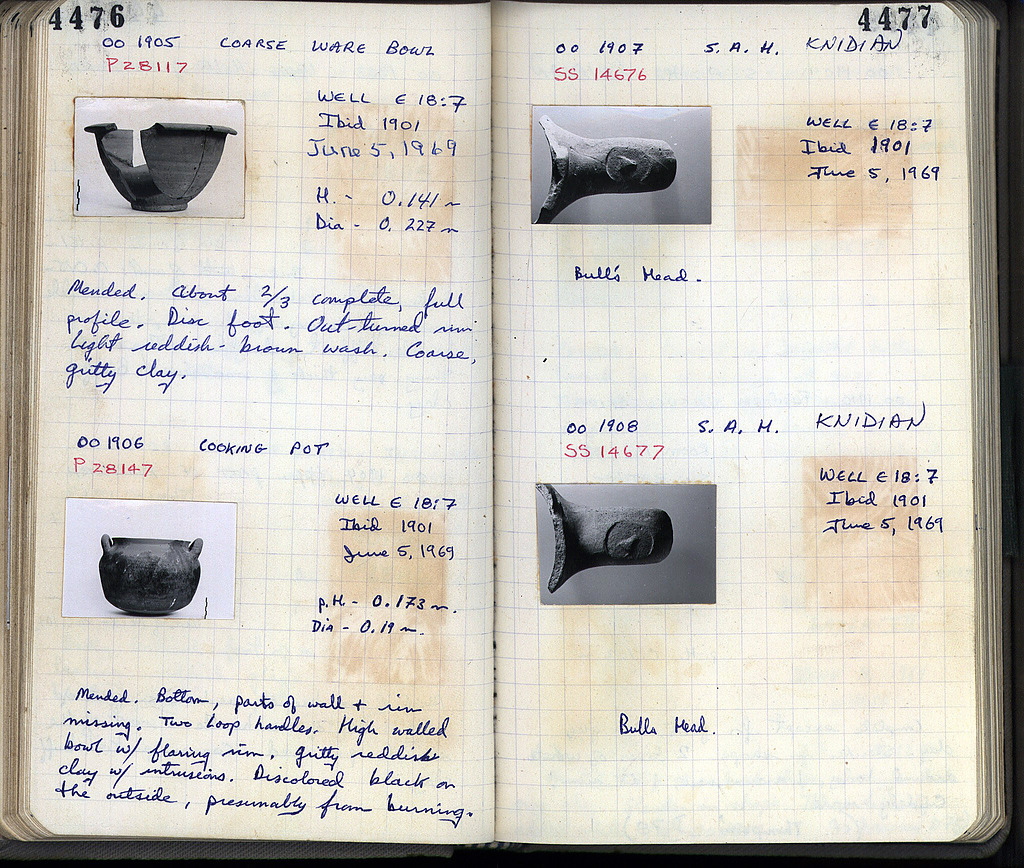 4476
OO 1905 COARSE WARE BOWL
P 28117
WELL E 18:7
Ibid 1901
June 5, 1969
H. - 0.141 m
Dia - 0.227 m
Mended. About 2/3 complete, full
profile. Disc foot. Out-turned rim
Light reddish-brown wash. Coarse,
gritty clay.
OO 1906 COOKING POT
P 28147
WELL E 18:7
Ibid 1901
June 5, 1969
p.H. - 0.173 m.
Dia - 0.19 m.
Mended. Bottom, parts of wall + rim
missing. Two loop handles. High walled
bowl w/ flaring rim. Gritty reddish
clay w/ intrusions. Discolored black on
the outside, presumably from burning.
4477
OO 1907 S. A. H. KNIDIAN
SS 14676
WELL E 18:7
Ibid 1901
June 5, 1969
Bull's Head.
OO 1908 S. A. H. KNIDIAN
SS 14677
WELL E 18:7
Ibid 1901
June 5, 1969
Bulls Head.